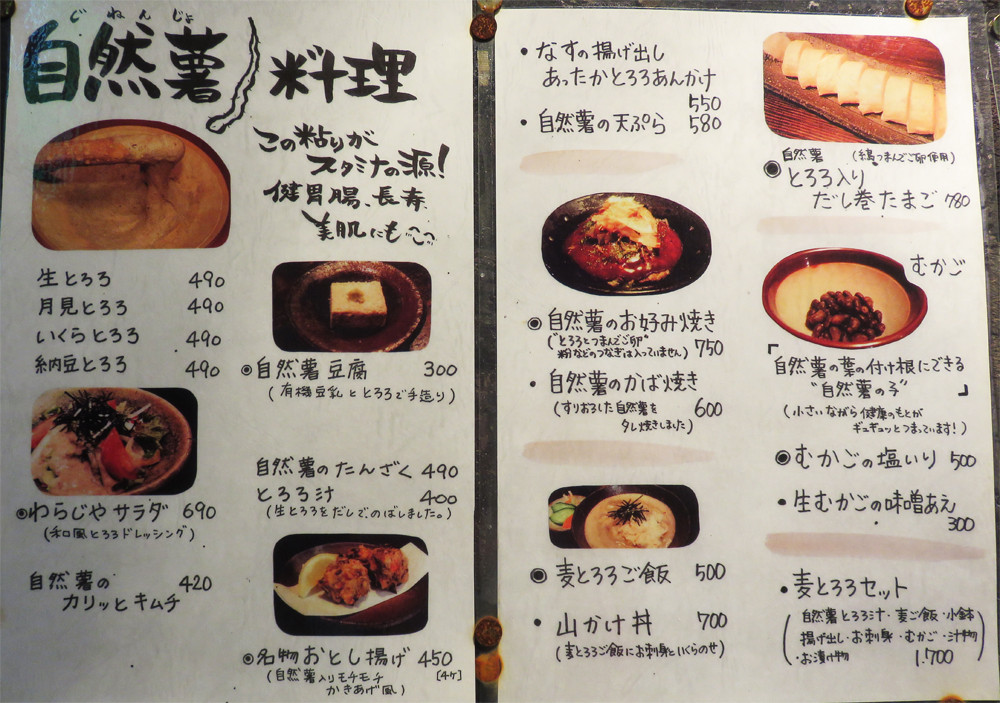 じねんじょ
自然薯料理
この粘りが
スタミナの源!
健胃腸、長寿
美肌にも
生とろろ 490
月見とろろ 490
いくらとろろ 490
納豆とろろ 490
◉わらじやサラダ 690
(和風とろろドレッシング)
自然薯の 420
カリッとキムチ
◉自然薯豆腐 300
(有機豆乳ととろろで手造り)
自然薯のたんざく 490
とろろ汁 400
(生とろろをだしでのばしました。)
◉名物おとし揚げ 450
[4ケ]
(自然薯入りモチモチ
かきあげ風)
・なすの揚げ出し
あったかとろろあんかけ
550
・自然薯の天ぷら 580
◉自然薯のお好み焼き
("とろろとつまんでご卵"
粉などのつなぎは入っていません) 750
・自然薯のかば焼き
(すりおろした自然薯を 600
タレ焼きしました)
◉麦とろろご飯 500
・山かけ丼 700
(麦とろろご飯にお刺身といくらのせ)
自然薯 (つまんでご卵使用)
◉とろろ入り
だし巻たまご 780
むかご
「自然薯の葉の付け根にできる
"自然薯の子"」
(小さいながら健康のもとが
ギュギュッとつまっています!)
◉むかごの塩いり 500
・生むかごの味噌あえ
300
・麦とろろセット
(自然薯とろろ汁・麦ご飯・小鉢
揚げ出し・お刺身・むかご・汁物
・お漬け物 1.700)